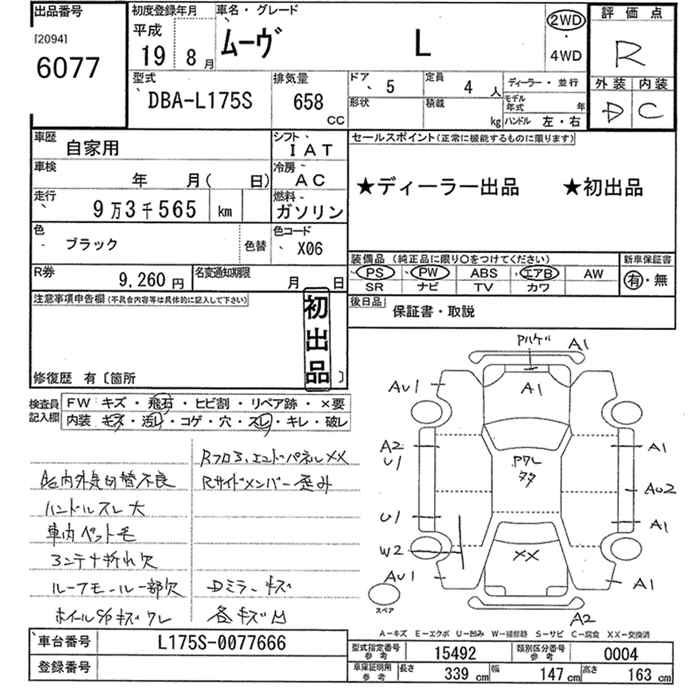 出品番号
[2094]
6077
初度登録年月
平成
19 8月
車名・グレード
ムーヴ L
2WD
・
4WD
評価点
R
外装 内装
D C
型式
DBA-L175S
排気量
658
CC
ドア 5
定員 4 人
ディーラー・並行
形状
積載 kg
モデル年式 年
ハンドル 左・右
車歴
自家用
シフト
IAT
車検
年 月( 日)
冷房
AC
走行
9万3千565 km
燃料
ガソリン
色
ブラック
色替
色コード
X06
R券
9,260円
名変通知期限
月 日
セールスポイント(正常に機能するものに限ります)
★ディーラー出品 ★初出品
装備品(純正品に限り○をつけてください)
PS PW ABS エアB AW
SR ナビ TV カワ
新車保証書
有・無
後日品
保証書・取説
注意事項申告欄(不具合内容等は具体的に記入して下さい)
初出品
修復歴 有〔箇所 〕
検査員記入欄
FW キズ・飛石・ヒビ割・リペア跡・×要
内装 キズ・汚レ・コゲ・穴・スレ・キレ・破レ
RフロS、エンドパネルXX
Rサイドメンバー歪み
内外気切替不良
ハンドルスレ大
車内ペット毛
アンテナ折れ欠
ルーフモール一部欠
Dミラーキズ
ホイルS/Pキズワレ
各キズ凹
Pハゲ A1
AU1 A1
A2 U1
A1
Pワレ
AU2
U1
A1
W2
XX
AU1
A1
A2
スペア
A-キズ E-エクボ U-凹み W-補修跡 S-サビ C-腐食 XX-交換済
車台番号
L175S-0077666
登録番号
型式指定番号
参考
15492
類別区分番号
参考
0004
車庫証明用
参考
長さ 339 cm 幅 147 cm 高さ 163 cm